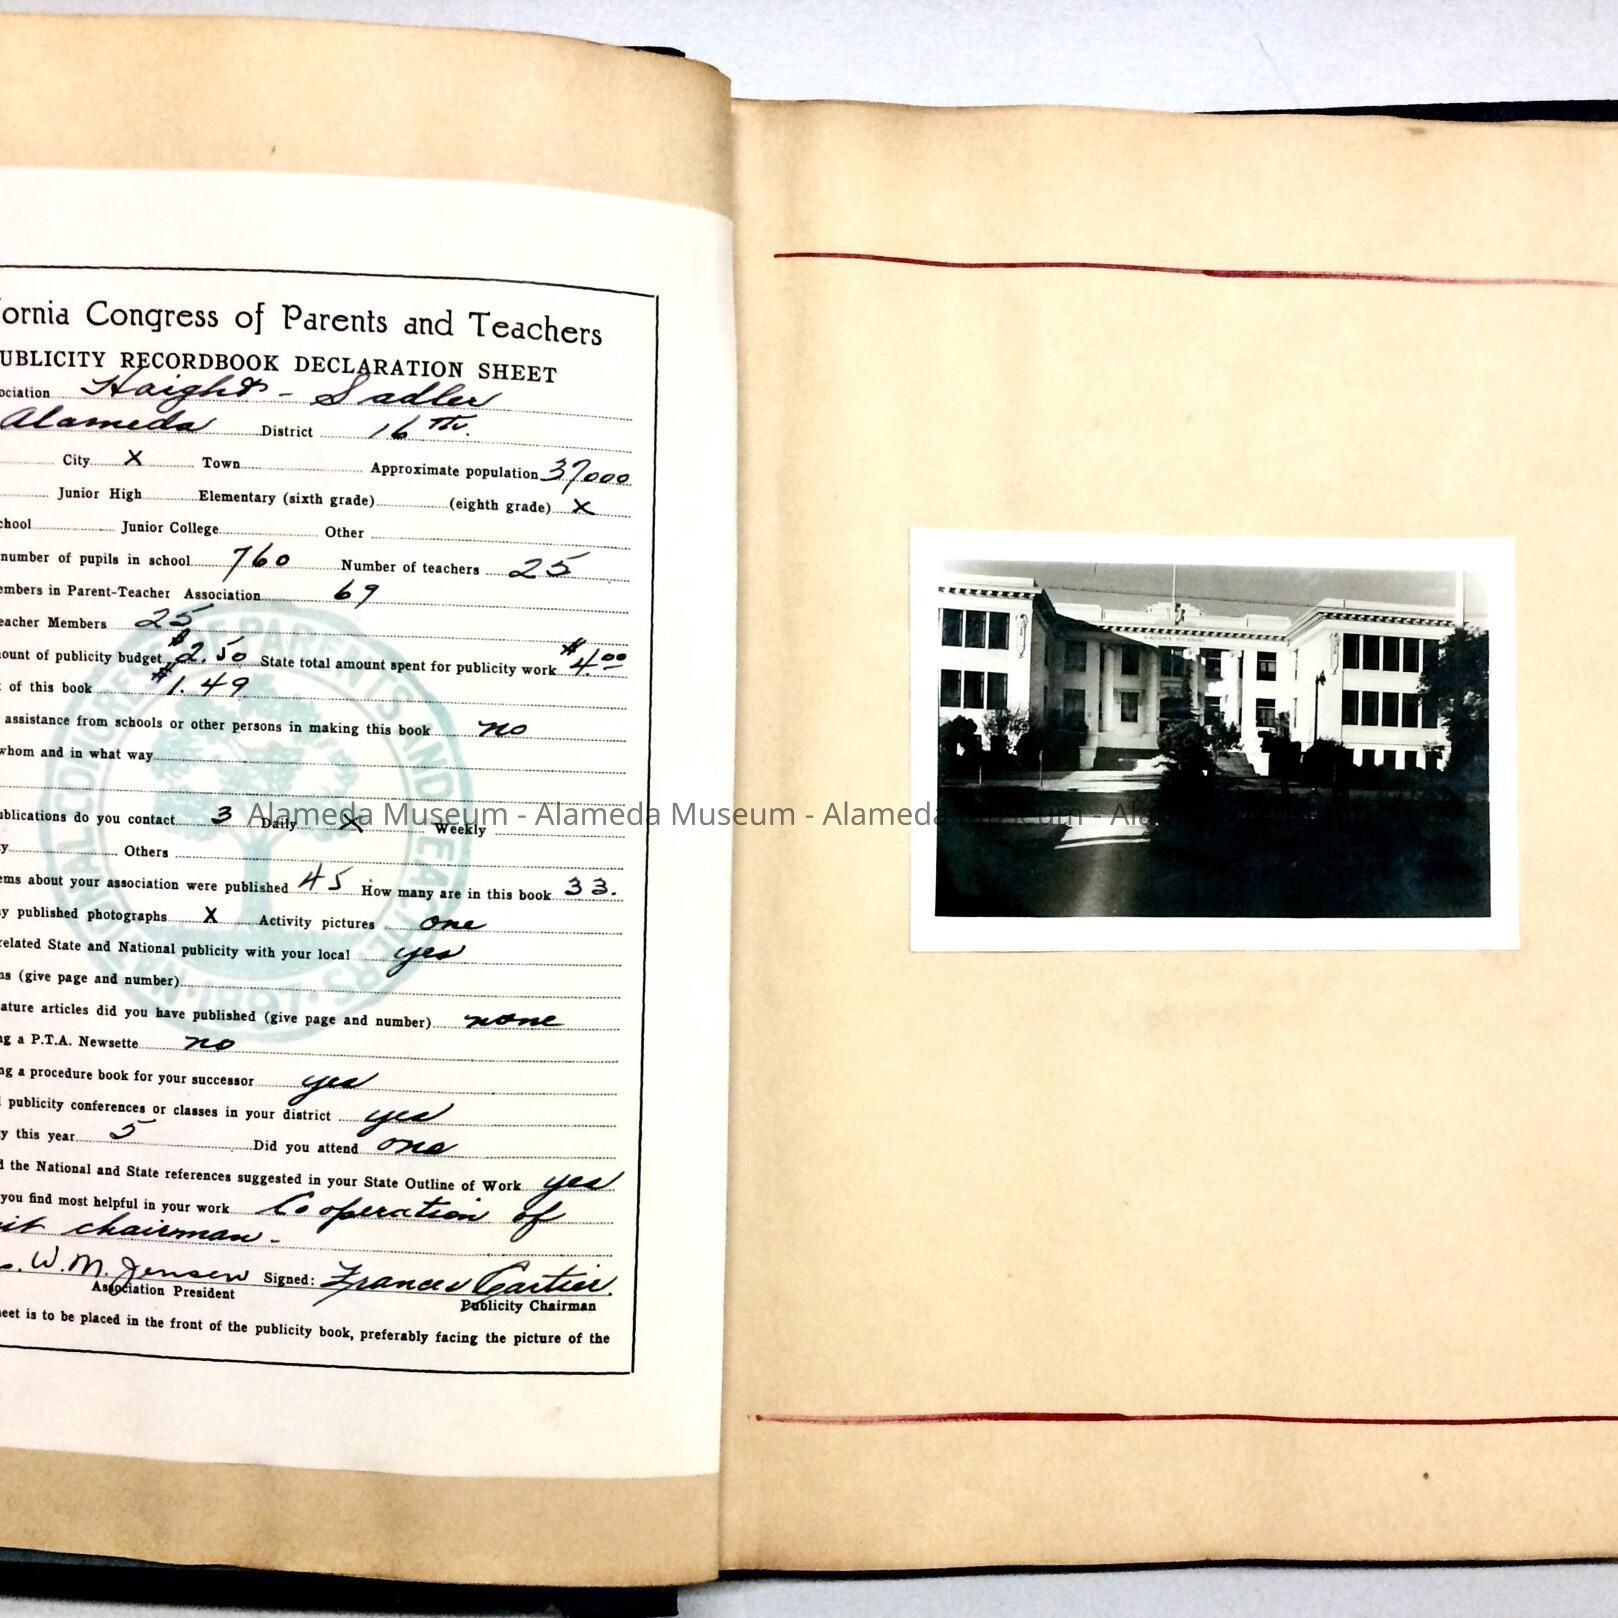 ornia Congress of Parents and Teachers
UBLICITY RECORDBOOK DECLARATION SHEET
ociation Haight - Sadler
Alameda District 16th.
City X Town Approximate population 37000
Junior High Elementary (sixth grade) (eighth grade) X
chool Junior College Other
number of pupils in school 760 Number of teachers 25
embers in Parent-Teacher Association 69
eacher Members 25
ount of publicity budget $2.50 State total amount spent for publicity work $4.00
of this book $1.49
assistance from schools or other persons in making this book no
whom and in what way
ublications do you contact 3 Daily X Weekly
y Others
ems about your association were published 45 How many are in this book 33.
y published photographs X Activity pictures one
related State and National publicity with your local yes
ns (give page and number)
ature articles did you have published (give page and number) none
ng a P.T.A. Newsette no
ng a procedure book for your successor yes
publicity conferences or classes in your district yes
y this year 5 Did you attend one
d the National and State references suggested in your State Outline of Work yes
you find most helpful in your work Cooperation of
it chairman -
s. W. M. Jensen Signed: Frances Cartier.
Association President Publicity Chairman
eet is to be placed in the front of the publicity book, preferably facing the picture of the
HAIGHT SCHOOL
Alameda Museum - Alameda Museum - Alameda Museum - Ala
1897